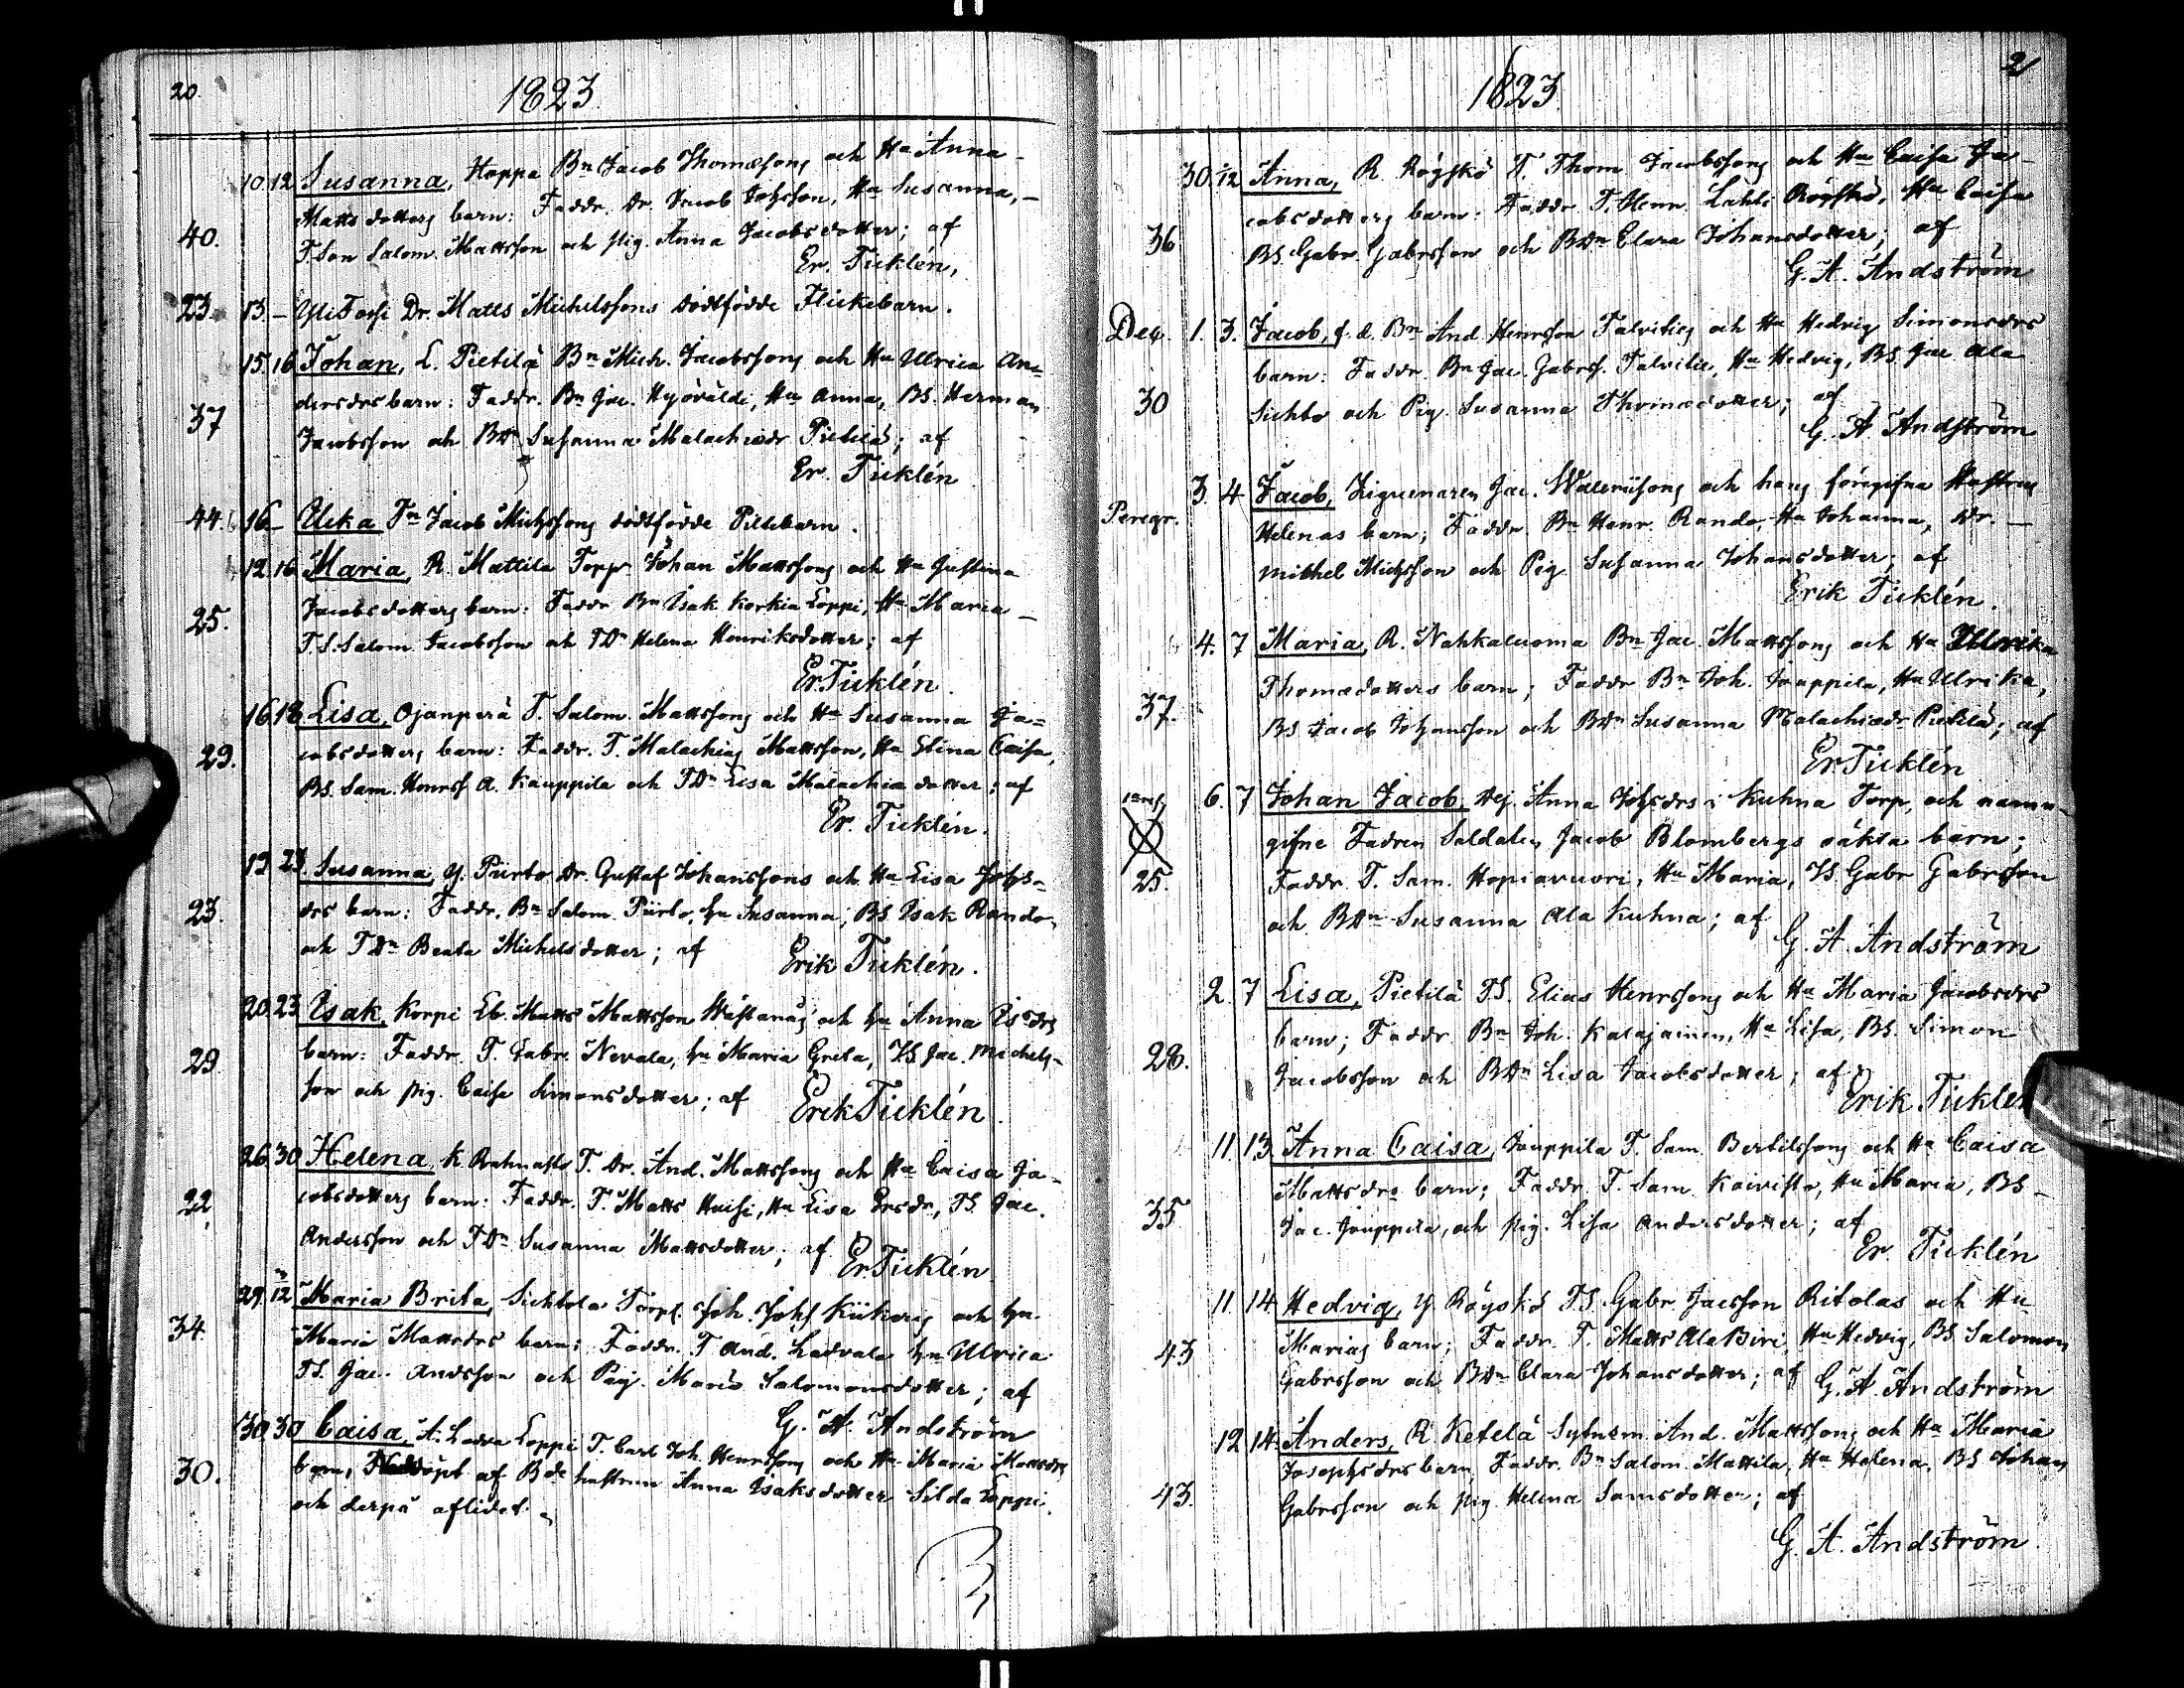 20.
1823
10. 12. Susanna, Hoppa Bn Jacob Thomæsons och Ha Anna
Matts dotters barn: Faddr. Dr. Jacob Johsson, Ha Susanna,
40.
T. Son Salom. Mattsson och pig. Anna Jacobsdotter; af
Er. Ticklén,
23. 13. — Yli Dr. Matts Michelssons dödfödde Flickebarn.
15. 16 Johan, L. Pietilä Bn Mich. Jacobssons och Ha Ulrica An=
dersdrs barn: Faddr. Bn Jac. Hyövälde, Ha Anna, BS. Herman
37
Jacobsson och BDn Susanna Malachiædr Pietilä; af
Er. Ticklén
44. 16 — Uska Tn Jacob Michssons dödfödde Piltebarn.
12. 16 Maria, R. Mattila Torp. Johan Mattssons och Ha Justina
Jacobsdotters barn: Faddr Bn Isak Korkia Loppi, Ha Maria —
25.
T.S. Salom. Jacobsson och TDn Helena Henriksdotter; af
Er. Ticklén.
16 18 Lisa, Ojanperä T. Salom. Mattssons och Ha Susanna Ja=
cobsdotters barn: Faddr. T. Malachias Mattsson, Ha Stina Caisa,
29.
BS. Sam. Henrss A. Kauppila och TDn Lisa Malachiæ dotter; af
Er. Ticklén.
19 23. Susanna, Y. Piirto Dr. Gustaf Johanssons och Ha Lisa Johs=
drs barn: Faddr. Bn Salom. Piirto, hu Susanna, BS Isak Rando,
23.
och TDn Beata Michelsdotter; af
Erik Ticklén.
20. 23 Isak, Korpi Matts Mattsson och hu Anna Isdrs
barn: Faddr. T. Gabr. Nevala, hu Maria Greta, TS Jac. Michels=
29
son och pig. Caisa Simonsdotter; af
Erik Ticklén.
26. 30 Helena K. T. Dr. And. Mattssons och Ha Caisa Ja=
cobsdotters barn: Faddr. T. Matts Huisi, Ha Lisa Ersdr., TS. Jac.
22.
Andersson och TDn Susanna Mattsdotter; af
Er. Ticklén
29. 12 Maria Brita, Sichtola Torp. Joh. Johs och hu
34.
Maria Mattsdrs barn: Faddr. T. And. Ladvala hu Ulrica
TS. Jac. Andsson och Pig. Maria Salomonsdotter; af
G. A. Andström
30. 30 Caisa, A. Ladva Loppi T. Carl Joh. Henrssons och Ha Maria Mattsdrs
30.
barn, Nöddöpt af Bde hustrun Anna Isaksdotter Loppi
och derpå aflidet.

21
1823.
30. 1/12 Anna, R. Röyskö T. Thom. Jacobssons och Ha Caisa Ja=
cobsdotters barn: Faddr. T. Henr. Lahti Röyskö, Ha Caisa
36
BS. Gabr. Gabrsson och BDn Clara Johansdotter; af
G. A. Andström
Dec. 1. 3. Jacob, Bn And. Henrsson Talvities och Ha Hedvig Simonsdrs
barn: Faddr. Bn Jac. Gabrss. Talvitie, Ha Hedvig, BS. Jac Ala
30
Sichto och Pig. Susanna Thomædotter; af
G. A. Andström
3. 4 Jacob, Ziguenaren Jac. och hans föregifna Hustrus
Peregr.
Helenas barn; Faddr. Bn Henr. Rando, Ha Johanna, Dr. —
Michel Michsson och Pig Susanna Johansdotter; af
Erik Ticklén.
4. 7 Maria, R. Nahkaluoma Bn Jac. Mattssons och Ha Ullrika
Thomædotters barn; Faddr Bn Joh. Jouppila, Ha Ulrika,
37.
BS Jacob Johansson och BDn Susanna Malachiædr Pietilä; af
Er Ticklén
6. 7 Johan Jacob, Anna Johsdrs i Kuhna Torp, och namn=
gifne Fadren Soldaten Jacob Blombergs oäkta barn;
25.
Faddr. T. Sam. Hopiavuori, Ha Maria, TS. Gabr Gabrsson
och BDn Susanna Ala Kuhna; af
G. A. Andström
2. 7 Lisa, Pietilä TS. Elias Henrssons och Ha Maria Jacobsdrs
barn; Faddr Bn Joh. Kalajainen, Ha Lisa, BS. Simon
28.
Jacobsson och BDn Lisa Jacobsdotter; af
Erik Ticklén
11. 13. Anna Caisa, Jouppila T. Sam. Bertilssons och Ha Caisa
Mattsdrs barn; Faddr. T. Sam Koivisto, Ha Maria, BS —
35
Jac. Jouppila, och pig. Lisa Andersdotter; af
Er. Ticklén
11. 14 Hedvig, Y Röyskö TS. Gabr Jacsson Ritolas och Hu
43
Marias barn; Faddr. T. Matts Ala Biri, Ha Hedvig, BS Salomon
Gabrsson och BDn Clara Johansdotter; af
G. A. Andström
12. 14. Anders, R. Ketelä Sytnsm. And. Mattssons och Ha Maria
Josephsdrs barn, Faddr. Bn Salom. Mattila, Ha Helena, BS Johan
43.
Gabrsson och pig Helena Samsdotter; af
G. A. Andström.